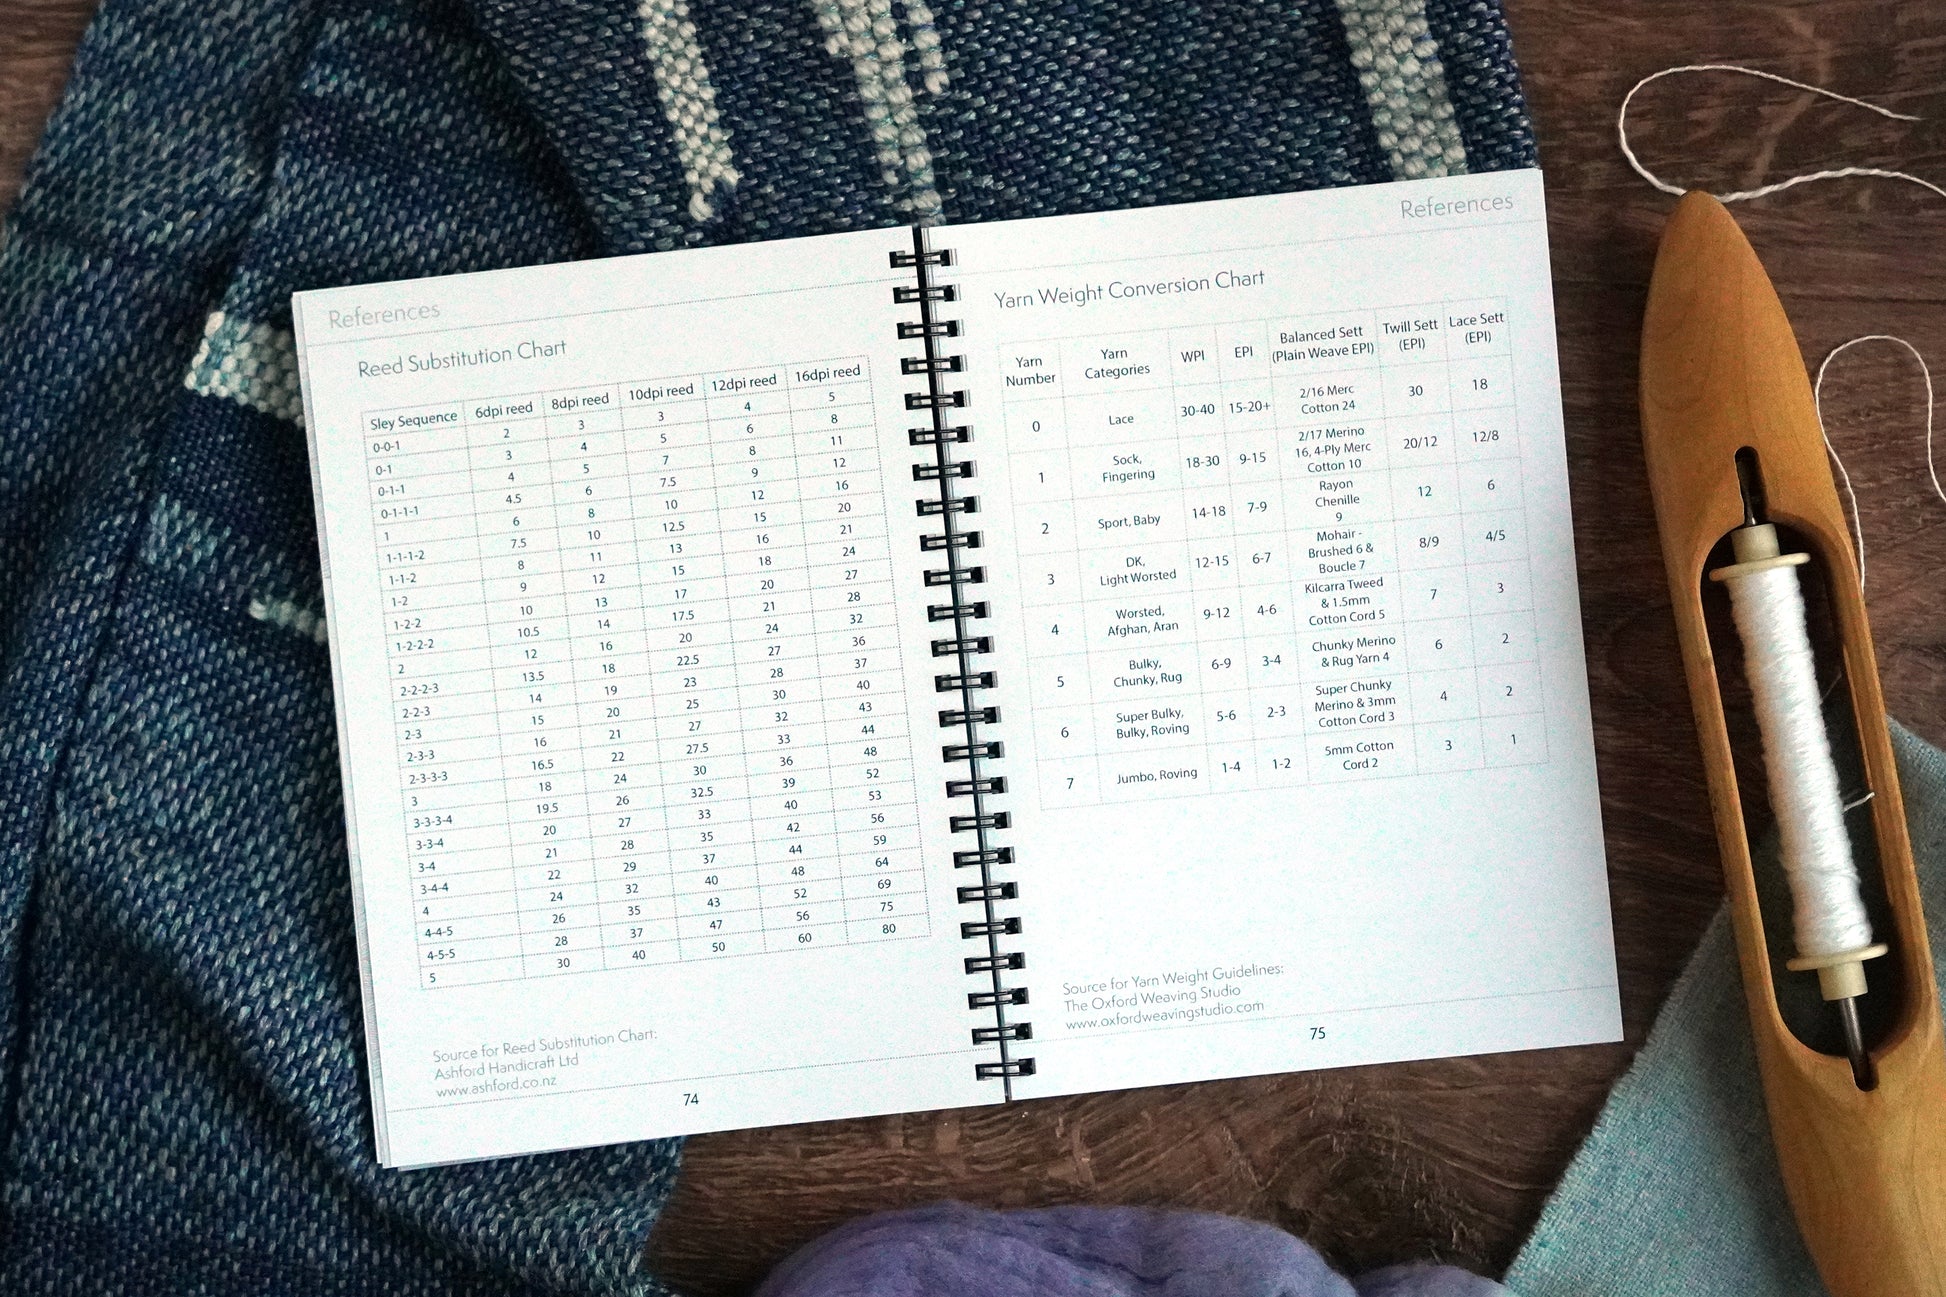 References
Reed Substitution Chart
Sley Sequence 6dpi reed 8dpi reed 10dpi reed 12dpi reed 16dpi reed
0-0-1 2 3 3 4 5
0-1 3 4 5 6 8
0-1-1 4 5 7 8 11
0-1-1-1 4.5 6 7.5 9 12
1 6 8 10 12 16
1-1-1-2 7.5 10 12.5 15 20
1-1-2 8 11 13 16 21
1-2 9 12 15 18 24
1-2-2 10 13 17 20 27
1-2-2-2 10.5 14 17.5 21 28
2 12 16 20 24 32
2-2-2-3 13.5 18 22.5 27 36
2-2-3 14 19 23 28 37
2-3 15 20 25 30 40
2-3-3 16 21 27 32 43
2-3-3-3 16.5 22 27.5 33 44
3 18 24 30 36 48
3-3-3-4 19.5 26 32.5 39 52
3-3-4 20 27 33 40 53
3-4 21 28 35 42 56
3-4-4 22 29 37 44 59
4 24 32 40 48 64
4-4-5 26 35 43 52 69
4-5-5 28 37 47 56 75
5 30 40 50 60 80
Source for Reed Substitution Chart:
Ashford Handicraft Ltd
www.ashford.co.nz
74
References
Yarn Weight Conversion Chart
Yarn
Number
Yarn
Categories
WPI
EPI
Balanced Sett
(Plain Weave EPI)
Twill Sett
(EPI)
Lace Sett
(EPI)
0
Lace
30-40
15-20+
2/16 Merc
Cotton 24
30
18
1
Sock,
Fingering
18-30
9-15
2/17 Merino
16, 4-Ply Merc
Cotton 10
20/12
12/8
2
Sport, Baby
14-18
7-9
Rayon
Chenille
9
12
6
3
DK,
Light Worsted
12-15
6-7
Mohair -
Brushed 6 &
Boucle 7
8/9
4/5
4
Worsted,
Afghan, Aran
9-12
4-6
Kilcarra Tweed
& 1.5mm
Cotton Cord 5
7
3
5
Bulky,
Chunky, Rug
6-9
3-4
Chunky Merino
& Rug Yarn 4
6
2
6
Super Bulky,
Bulky, Roving
5-6
2-3
Super Chunky
Merino & 3mm
Cotton Cord 3
4
2
7
Jumbo, Roving
1-4
1-2
5mm Cotton
Cord 2
3
1
Source for Yarn Weight Guidelines:
The Oxford Weaving Studio
www.oxfordweavingstudio.com
75